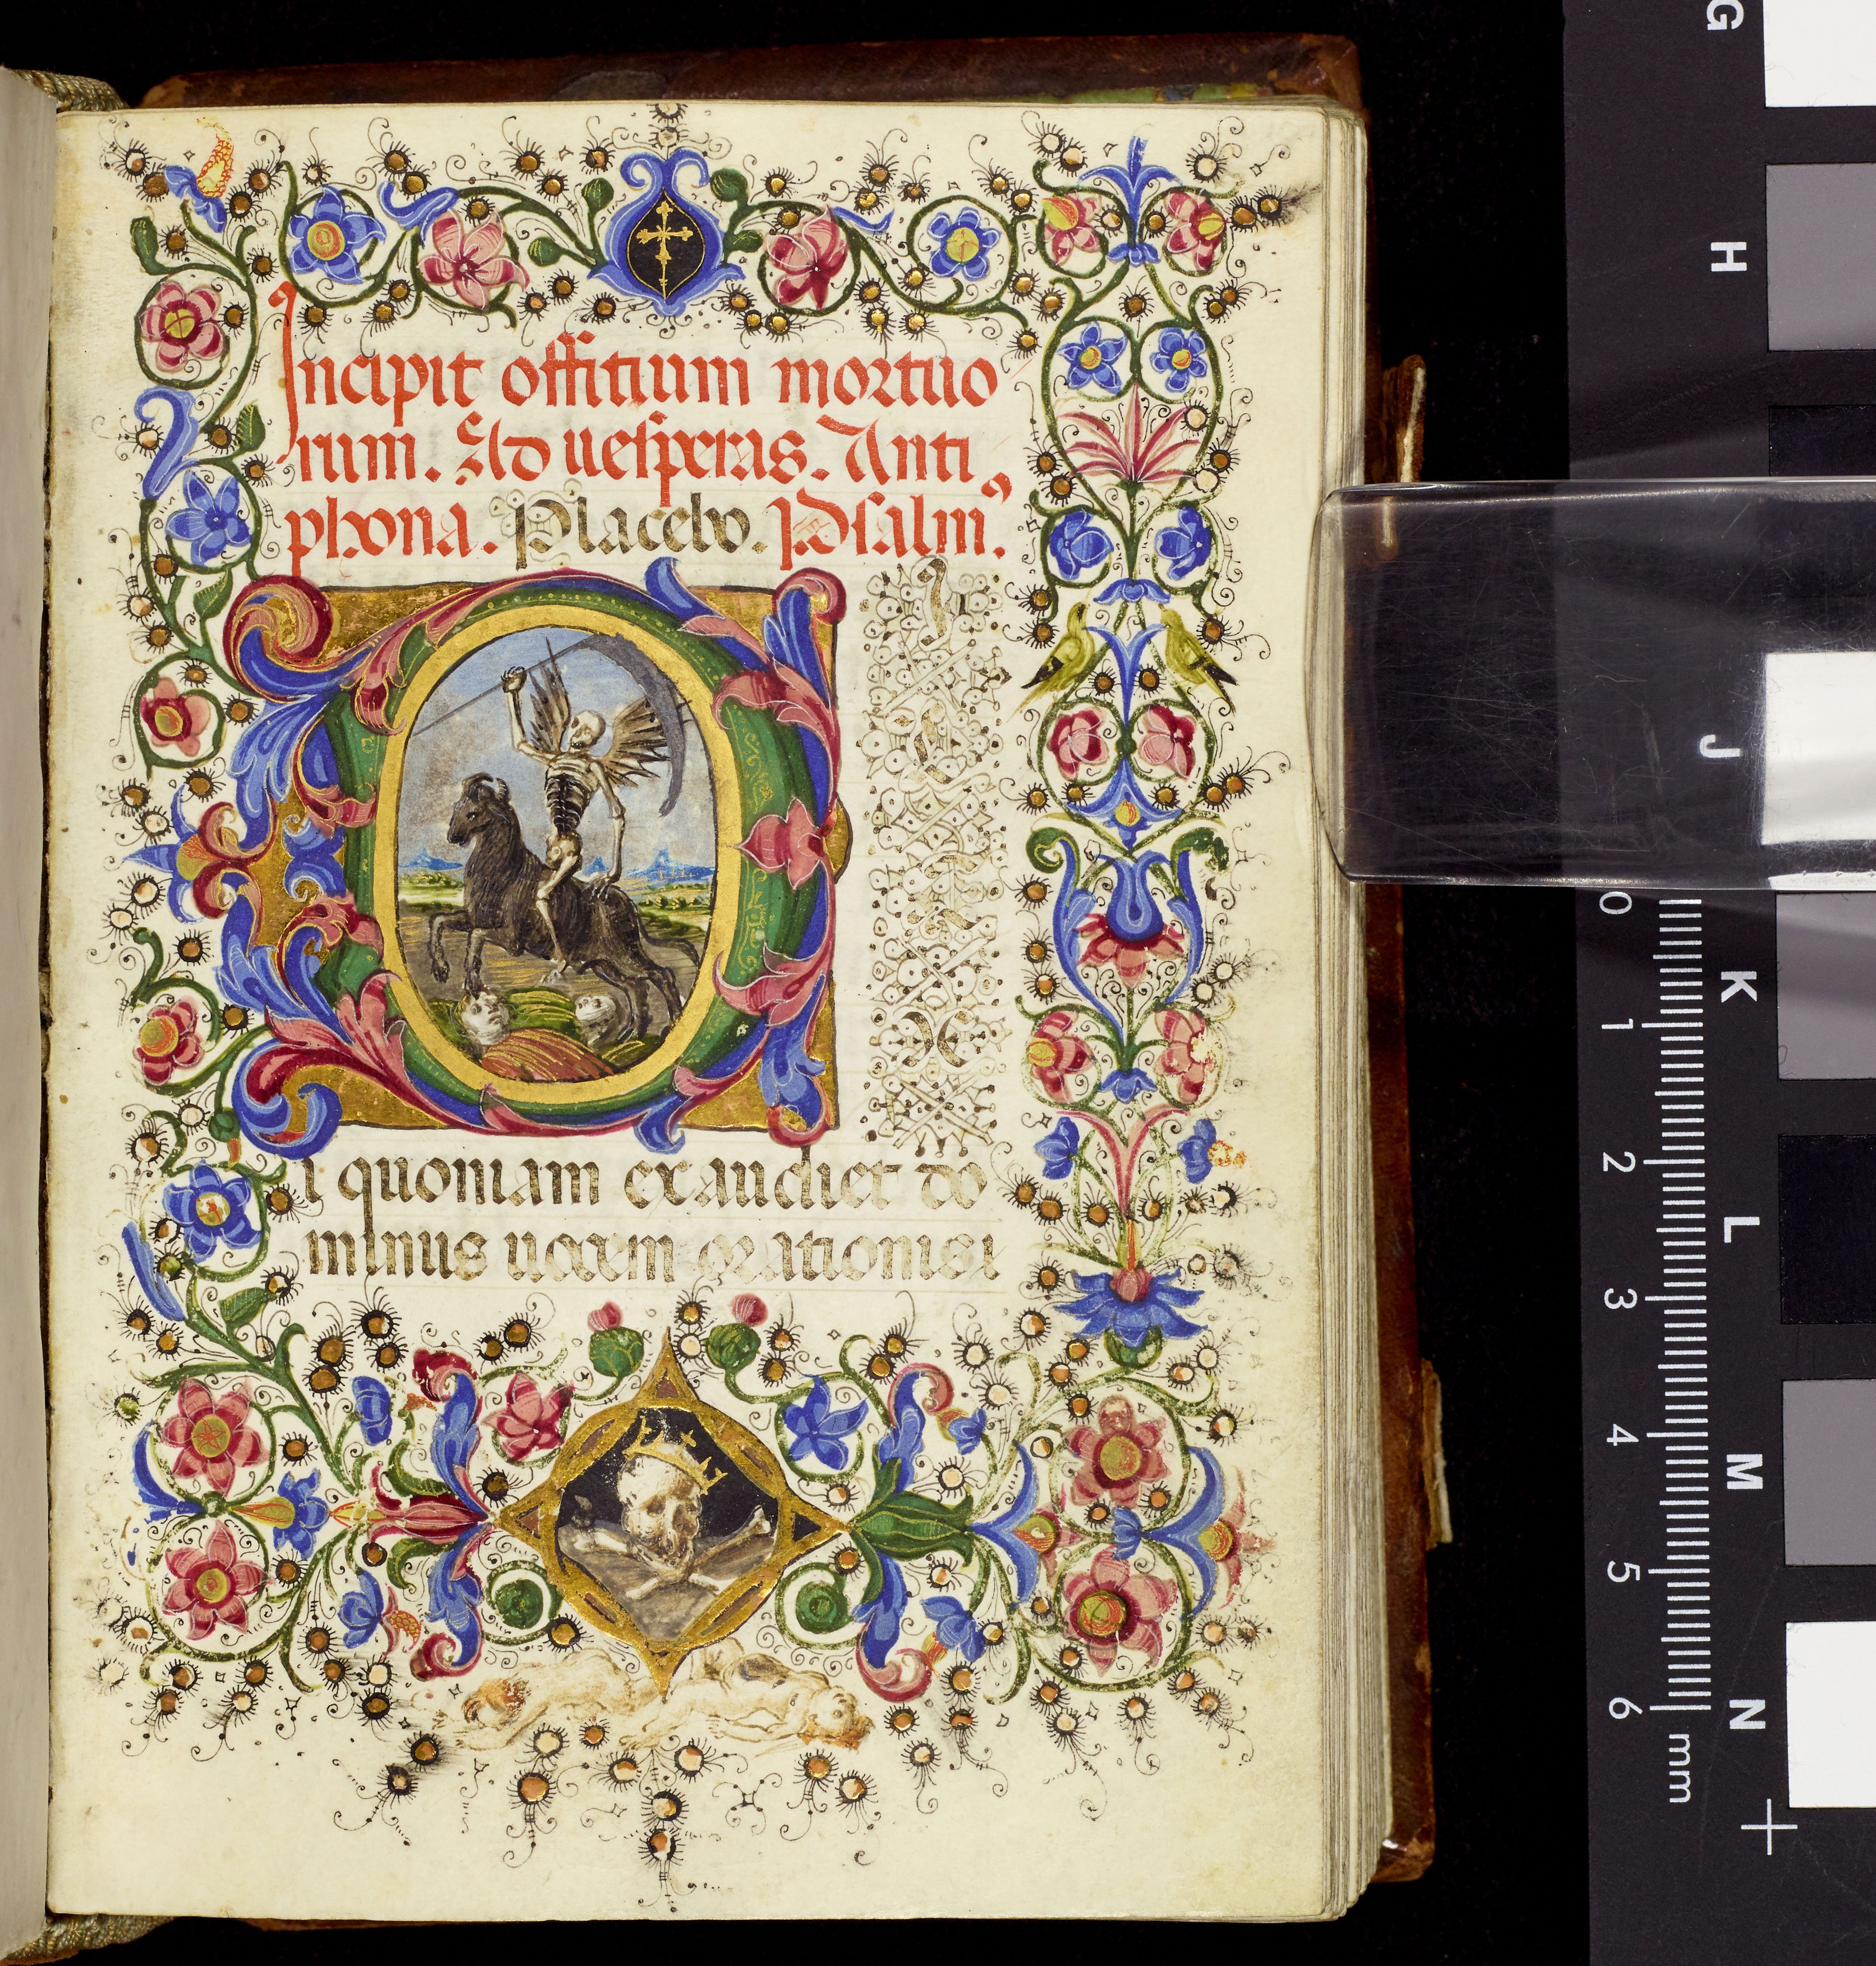 Incipit offitium mortuo
rum. Ad uesperas. Anti
phona. Placebo. Psalmꝰ.
D
I
L
E
X
i quoniam exaudiet do
minus uocem orationis
G
H
J
K
L
M
N
0
1
2
3
4
5
6
mm